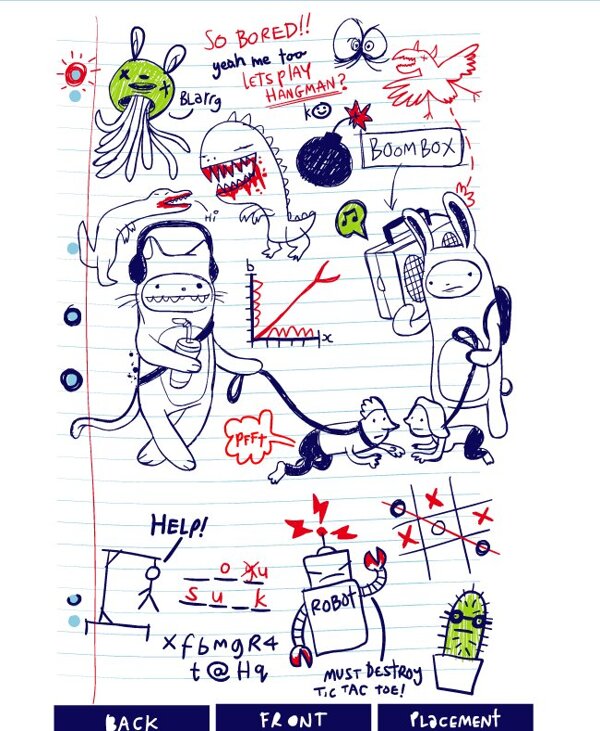 SO BORED!!
yeah me too
LETS PLAY
HANGMAN?
k☺
BLarrg
BOOM BOX
Hi
b
x
PFFT
HELP!
_ o u
s u _ k
xfbmgR4
t@Hq
ROBOT
MUST DESTROY
TIC TAC TOE!
BACK
FRONT
PLACEMENT